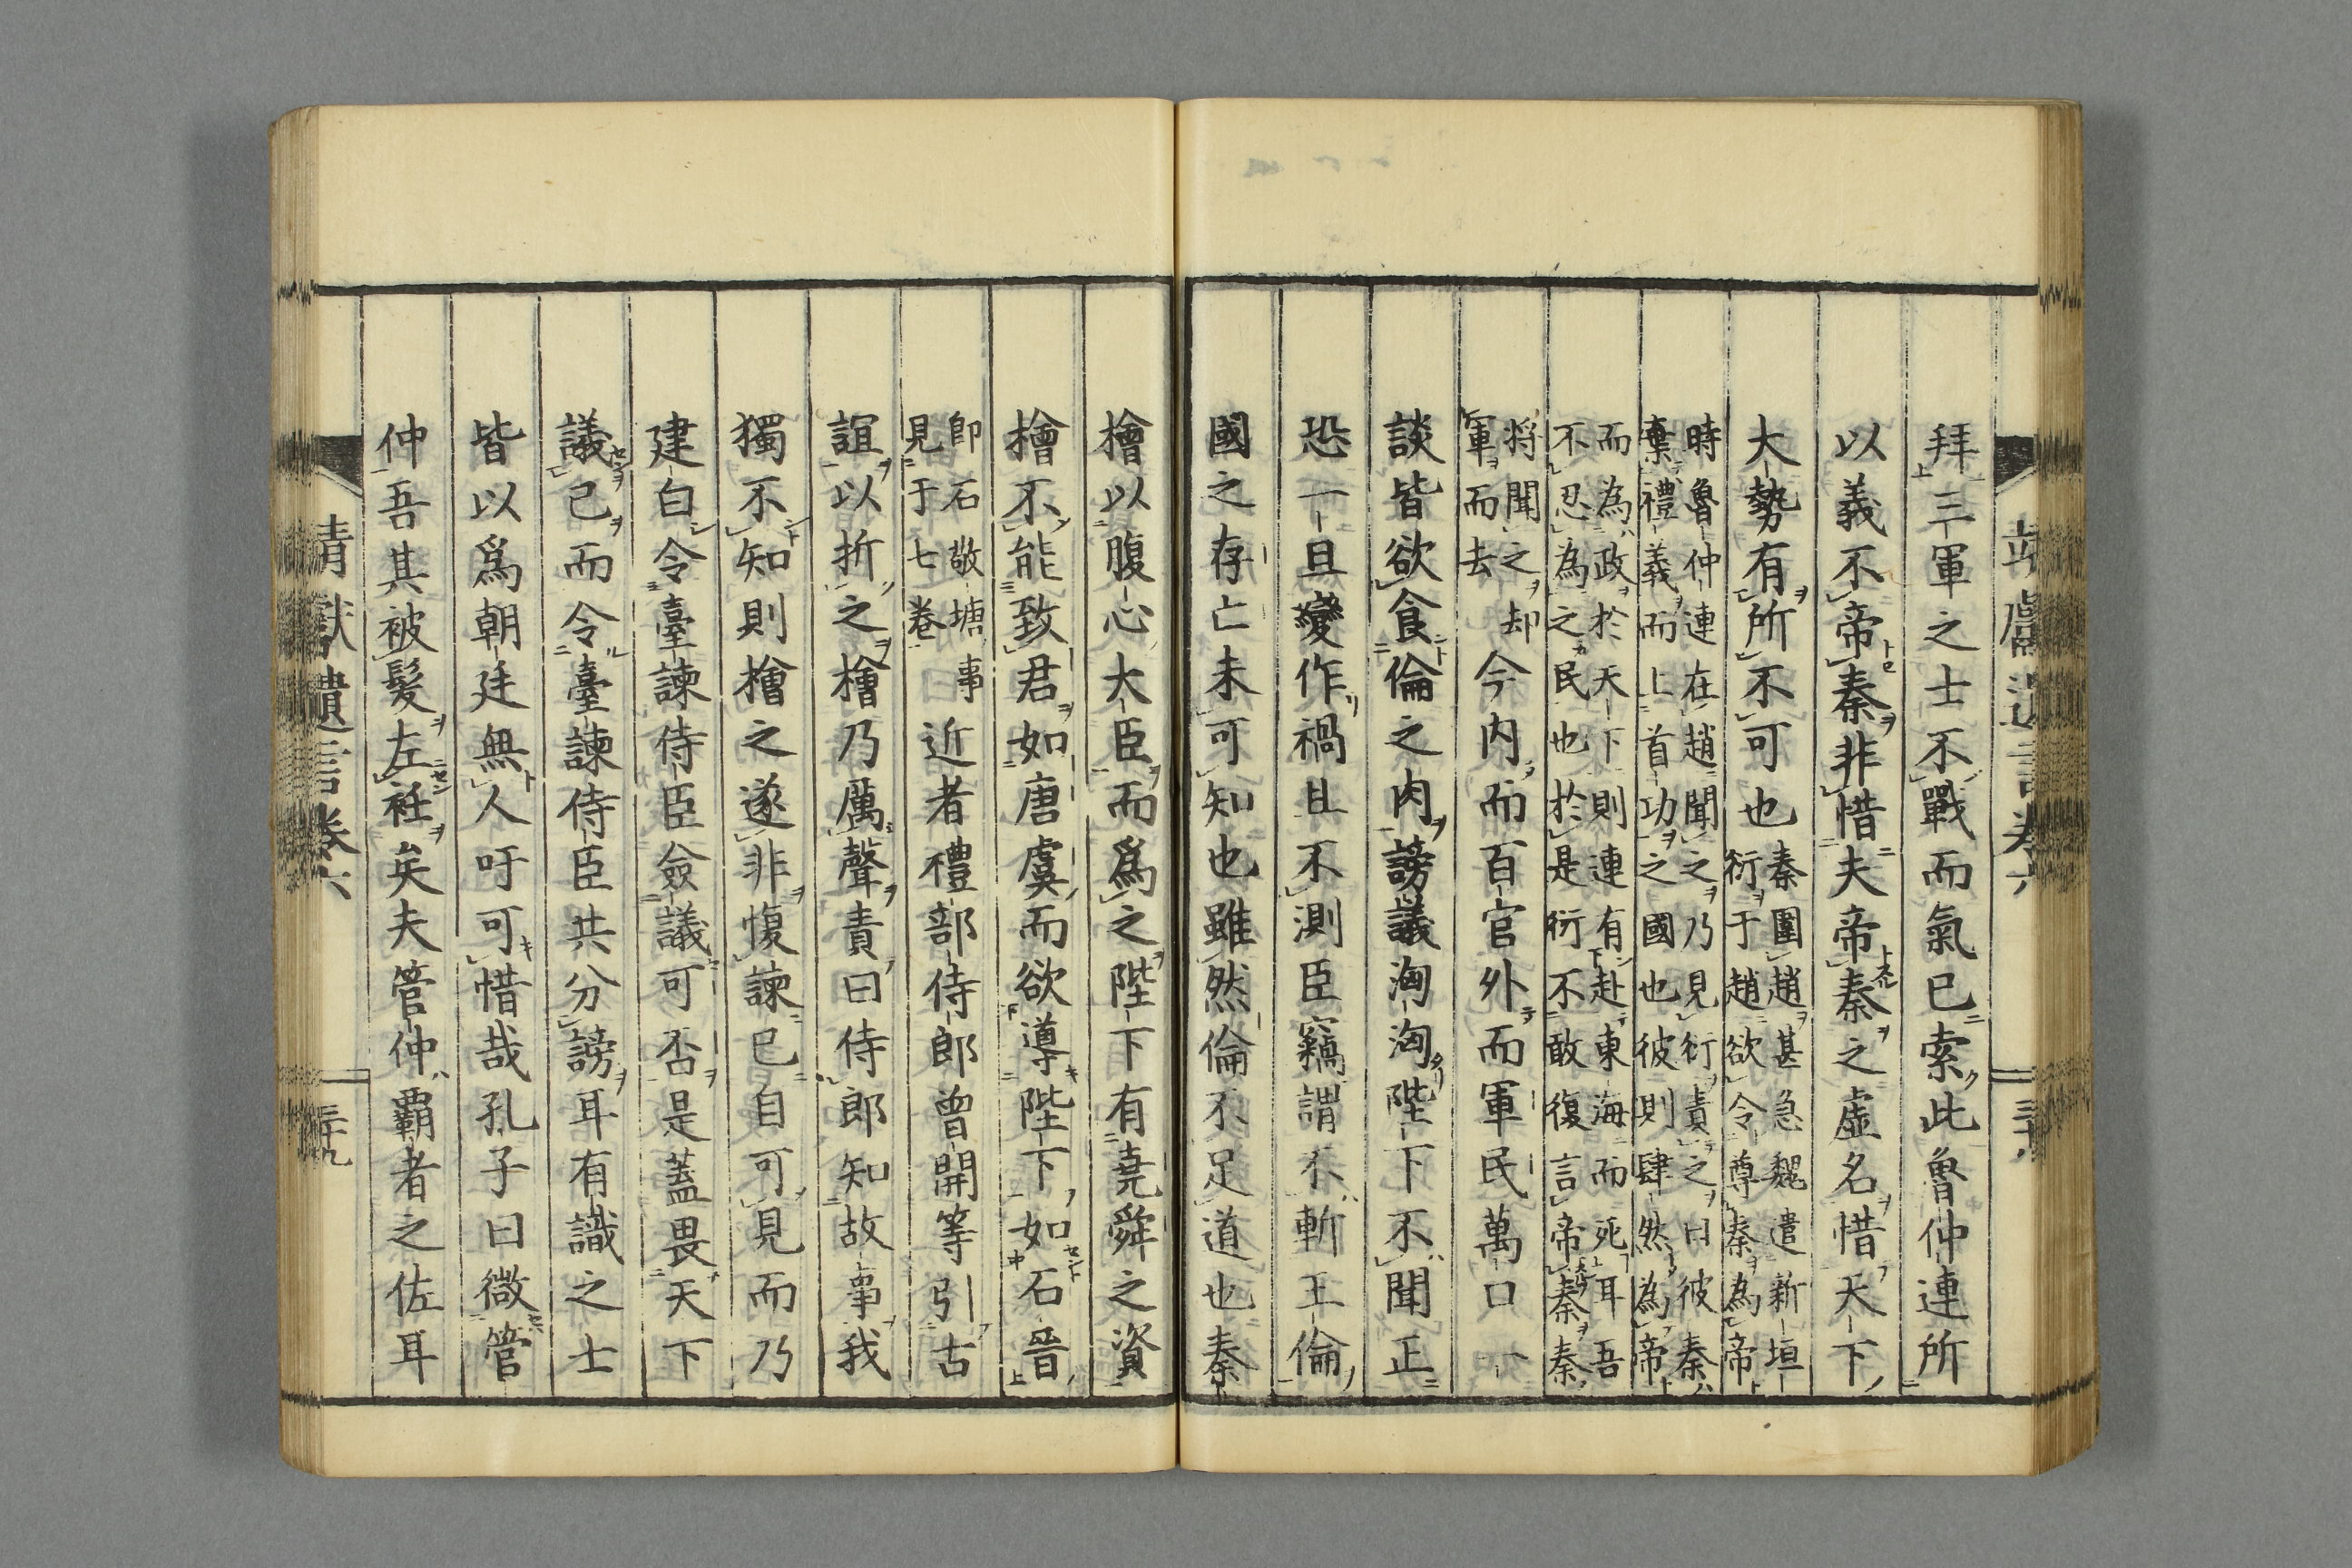 拜三軍之士不戰而氣已索此魯仲連所
以義不帝秦非惜夫帝秦之虛名惜天下
大勢有所不可也
秦圍趙甚急魏遣新垣
衍于趙欲令尊秦為帝
時魯仲連在趙聞之乃見衍責之曰彼秦
棄禮義而上首功之國也彼則肆然為帝
而為政於天下則連有赴東海而死耳吾
不忍為之民也於是衍不敢復言帝秦秦
將聞之却
軍而去
今內而百官外而軍民萬口一
談皆欲食倫之肉謗議洶洶陛下不聞正
恐一旦變作禍且不測臣竊謂不斬王倫
國之存亡未可知也雖然倫不足道也秦
檜以腹心大臣而爲之陛下有堯舜之資
檜不能致君如唐虞而欲導陛下如石晉
卽石敬塘事
見于七卷
近者禮部侍郎曾開等引古
誼以折之檜乃厲聲責曰侍郎知故事我
獨不知則檜之遂非愎諫已自可見而乃
建白令臺諫侍臣僉議可否是蓋畏天下
議己而令臺諫侍臣共分謗耳有識之士
皆以爲朝廷無人吁可惜哉孔子曰微管
仲吾其被髮左衽矣夫管仲霸者之佐耳
靖獻遺言卷六
三十九